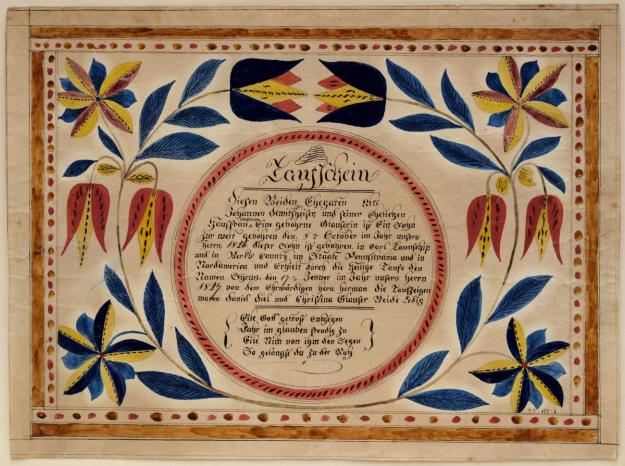 Taufschein
Diesen Beiden Ehegaten als
Johannes und seiner Ehelichen
Hausfrau Eine gebohrne Glauserin ist Ein Sohn
Zur welt gebohren den 8t October im Jahr unsers
herrn 1826 dieser Sohn ist gebohren in Earl Taunschip
und in Berks County im Staate Pennsylvania und in
Nordamerica und Erhielt durch die heilige Taufe den
Namen den 17t Jenner im Jahr unsers herrn
1827 von dem Ehrwürdigen hern herman die Taufzeigen
waren daniel und Christina Glauser Beide Ledig
Eile Gott getrost entgegen
Jahr im glauben frendig zu
Eile Nim von ihm den Segen
So gelangst du zu der Ruh